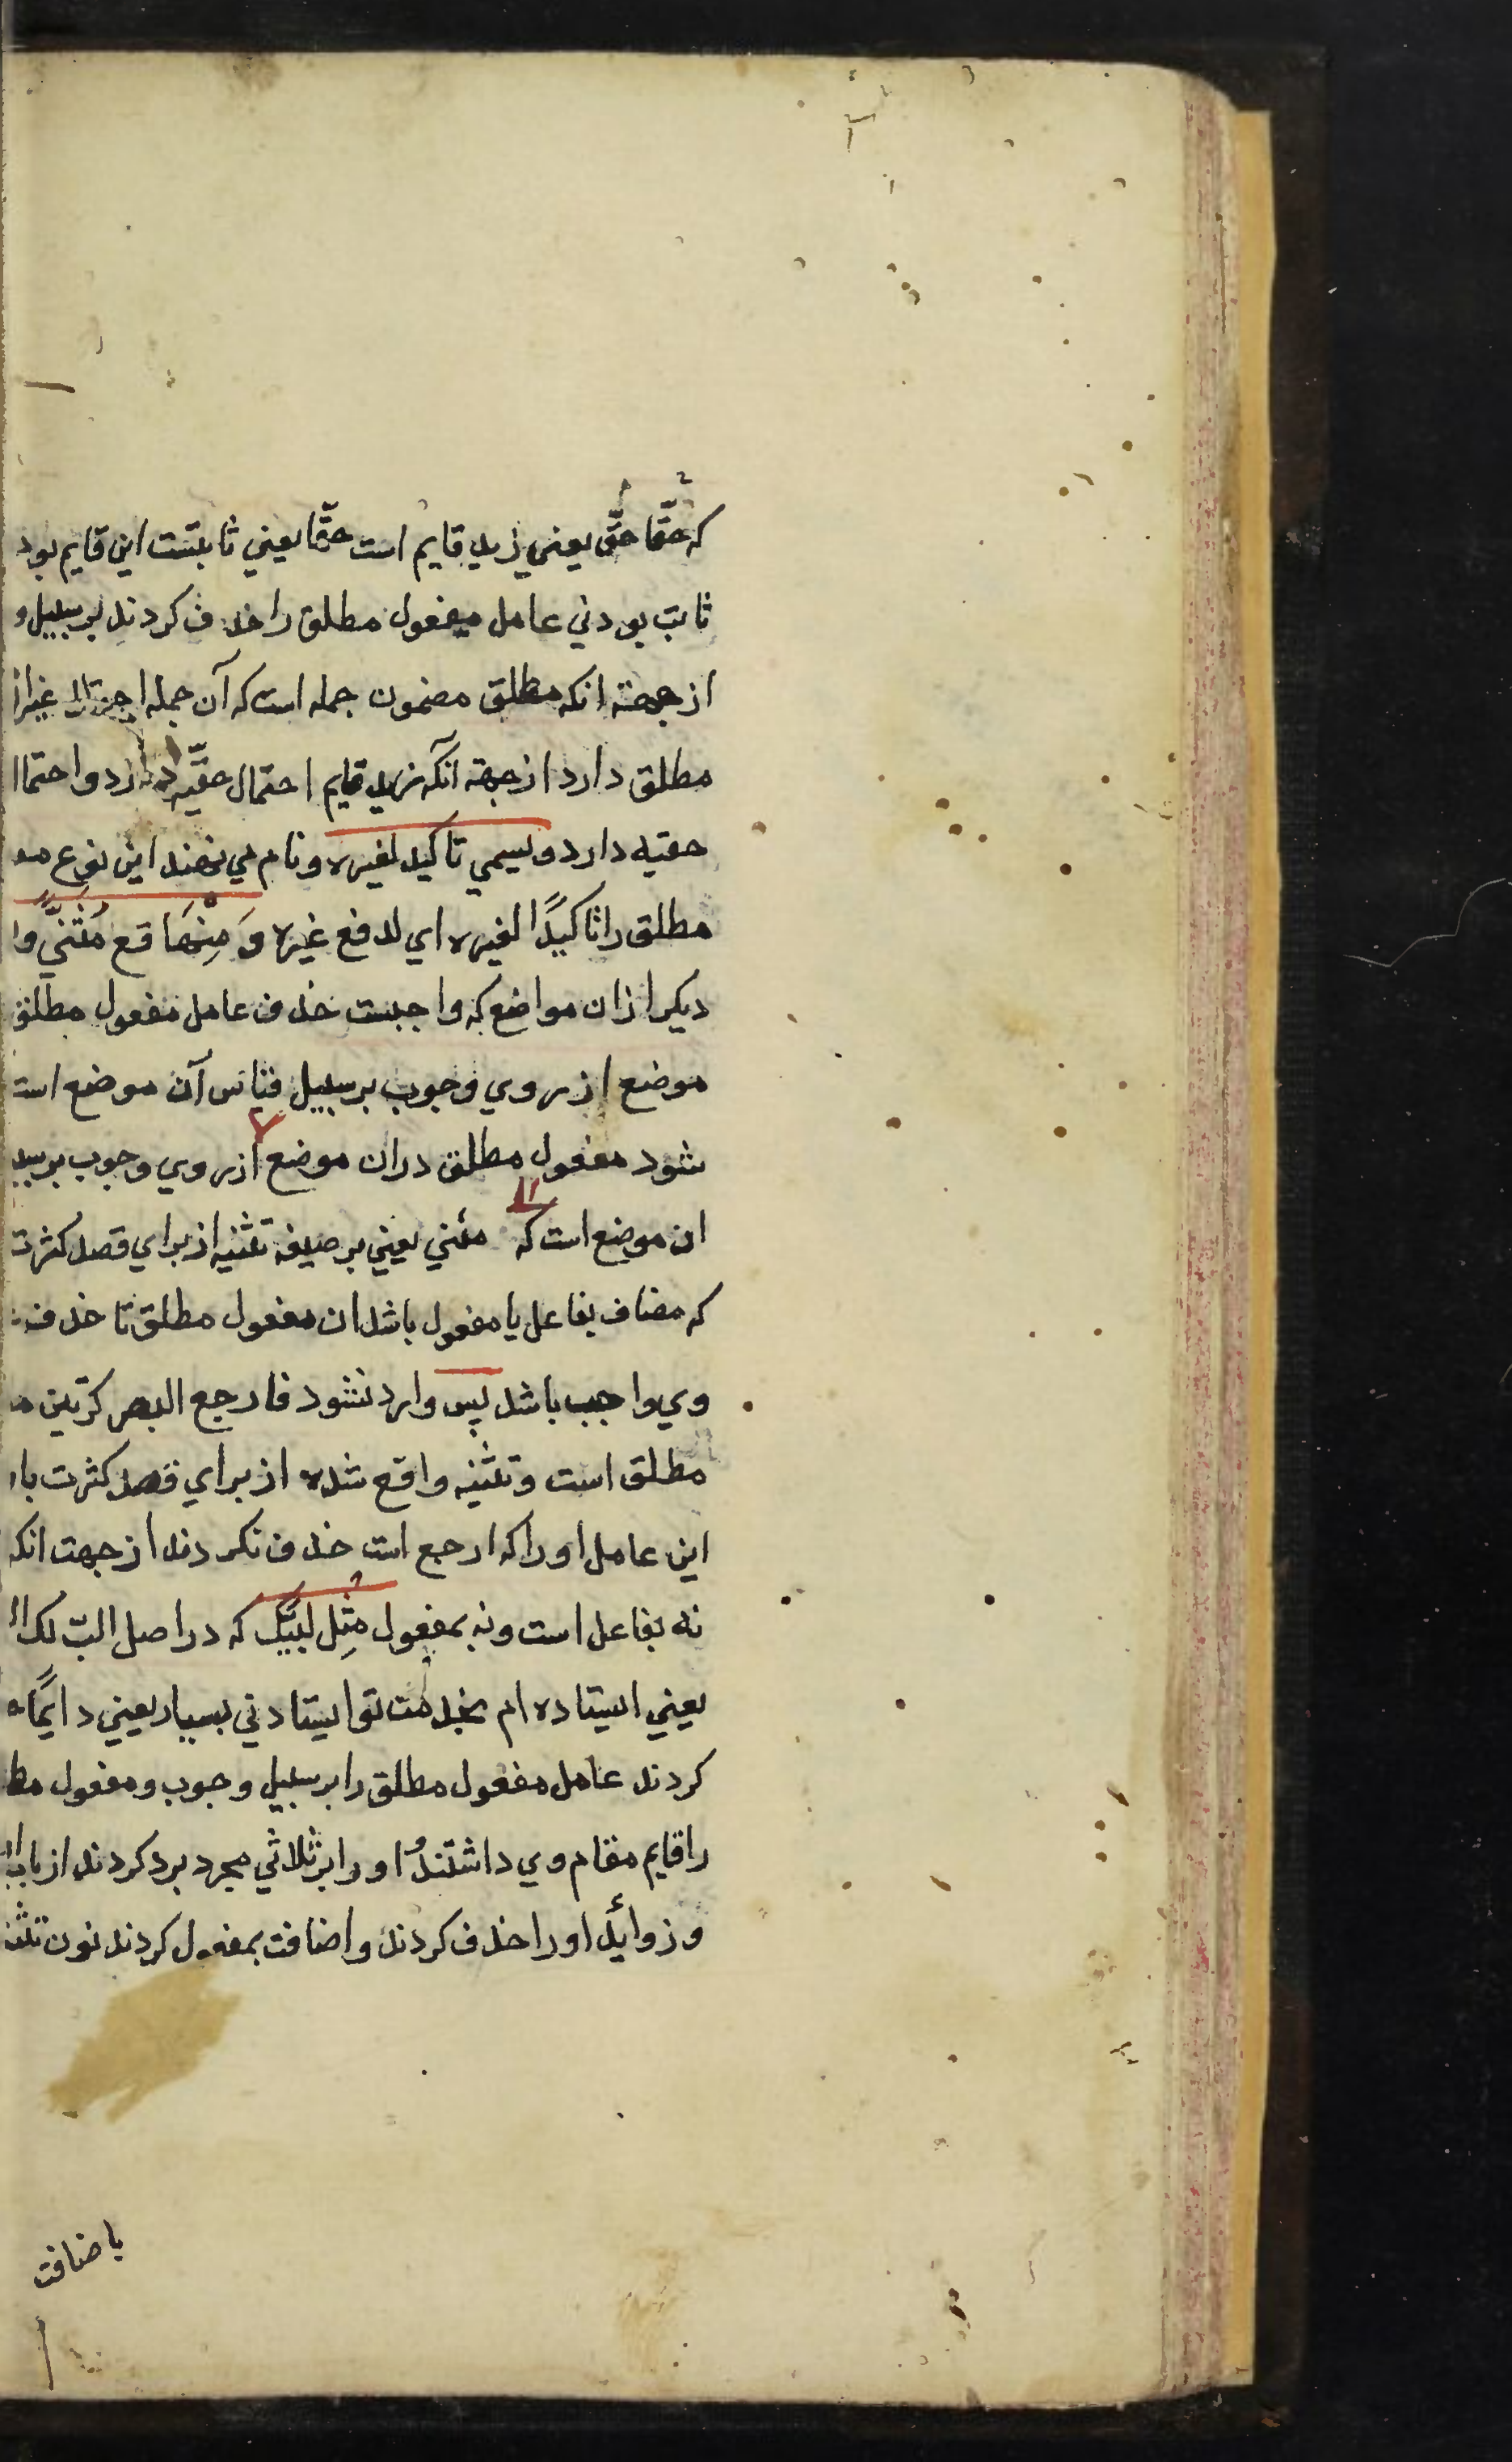 که حقّا حقّ یعنی زید قایم است حقّا یعنی ثابتست این قایم بود
ثابت بودنی عامل میفعول مطلق را خذف کردند بر سبیل و
از جهته انکه مطلق مضمون جمله است که آن جمله غیر از
مطلق دارد از جهة آنکه زید قایم احتمال حقیّه دارد و احتما
حقیه دارد و یسمی تاکید لغیره و نام می نهند این نوع
مطلق را تاکیدًا لغیره ای لدفع غیره وَ مِنْهَا قع مُثَنّیً وا
دیکر ازان مواضع که واجبست خذف عامل مفعول مطلق
موضع از روی وجوب بر سبیل قیاس آن موضع است
شود مفعول مطلق دران موضع از روی وجوب بر سبی
ان موضع است که مثنی یعنی بر صیغه تثنیه از برای قصد کثرت
که مضاف بفاعل یا مفعول باشد ان مفعول مطلق تا خذف
وی واجب باشد پس وارد نشود فارجع البصر کرّتین
مطلق است و تثنیه واقع شده از برای قصد کثرت با
این عامل او را که ارجع است خذف نکردند از جهت انکه
نه بفاعل است و نه بمفعول مِثل لبّیک که در اصل البّ لک
یعنی ایستاده ام بخدمت تو ایستادنی بسیار یعنی دایمًا
کردند عامل مفعول مطلق را بر سبیل وجوب و مفعول مط
را قایم مقام وی داشتند او را بر ثلاثی مجرد برد کردند از باب
و زوائد او را خذف کردند و اضافت بمفعول کردند نون تثن
باضافت